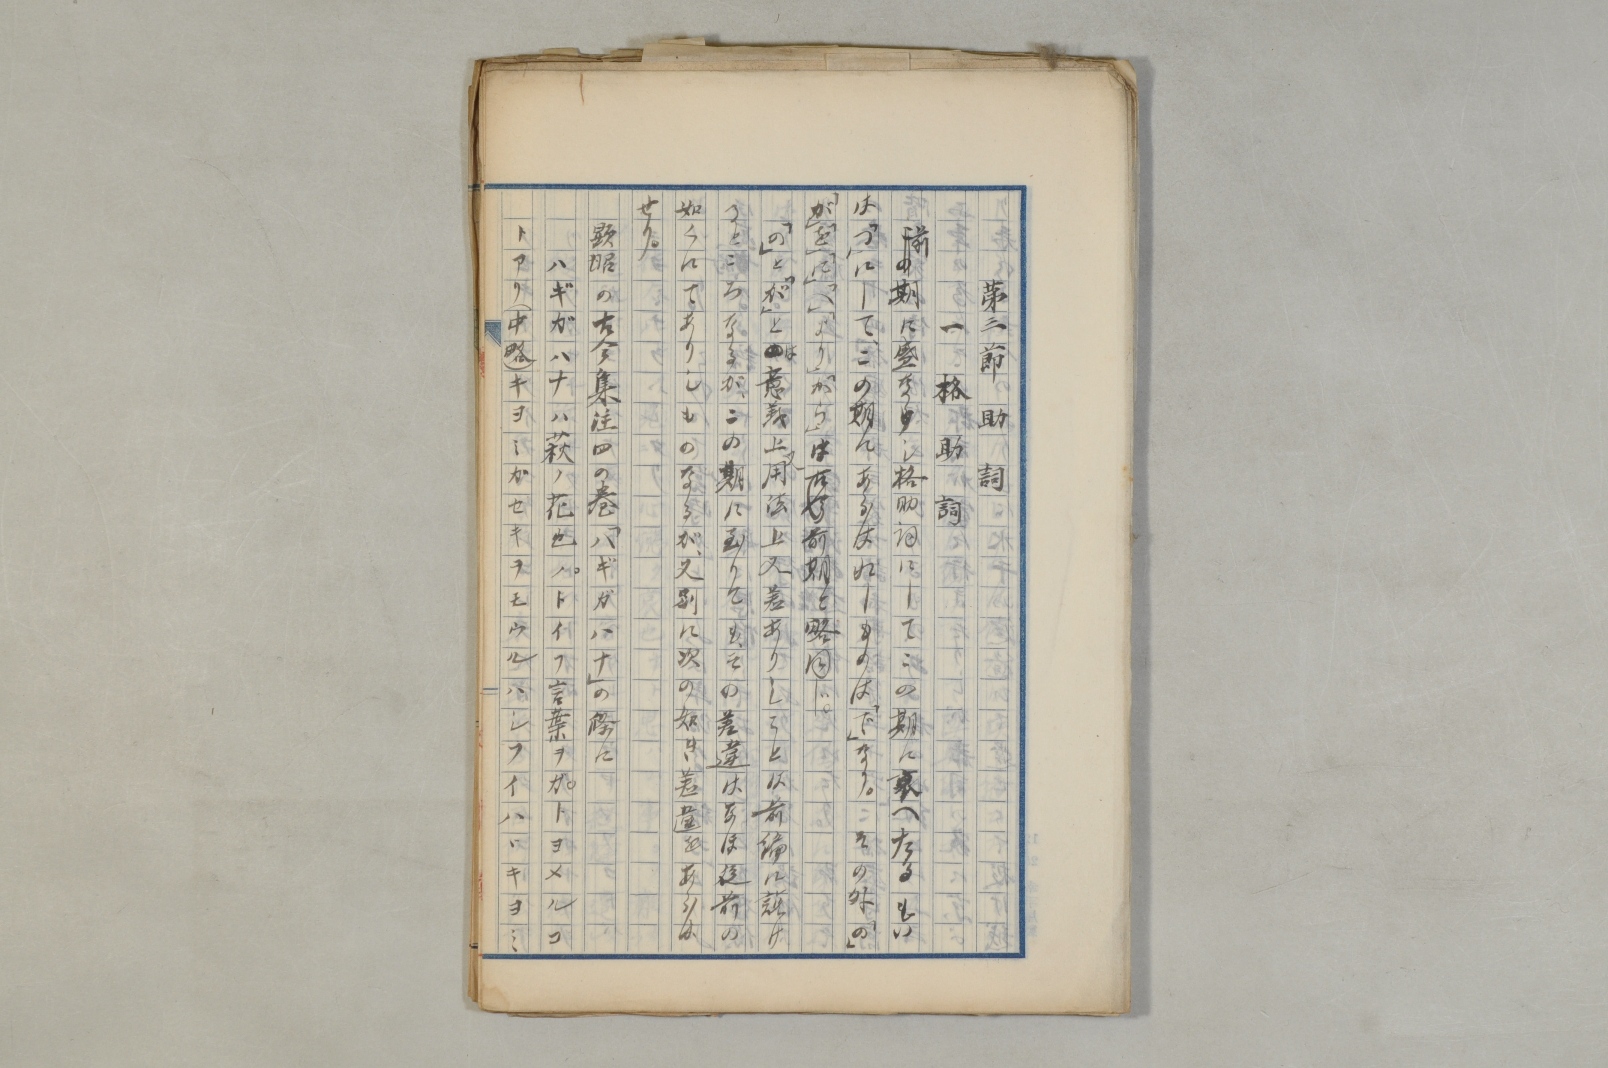 第三節 助詞
一 格助詞
前の期に盛なりし格助詞にしてこの期に衰へたるもの
は「つ」にして、この期にあらはれしものは「で」なり。その外「の」
「が」「を」「に」「へ」「より」「から」は前期と略同じ。
「の」と「が」とは意義上用法上又差ありしことは前編に説け
るところなるが、この期に至りても、その差違はなほ従前の
如くにてありしものなるが、又別に次の如き差違をあらは
せり。
顕昭の古今集注四の巻「ハギガハナ」の條に
ハギガハナハ萩ノ花也ノトイフ言葉ヲガトヨメルコ
トアリ(中略)キヨミガセキヲモウルハシクイハバキヨミ